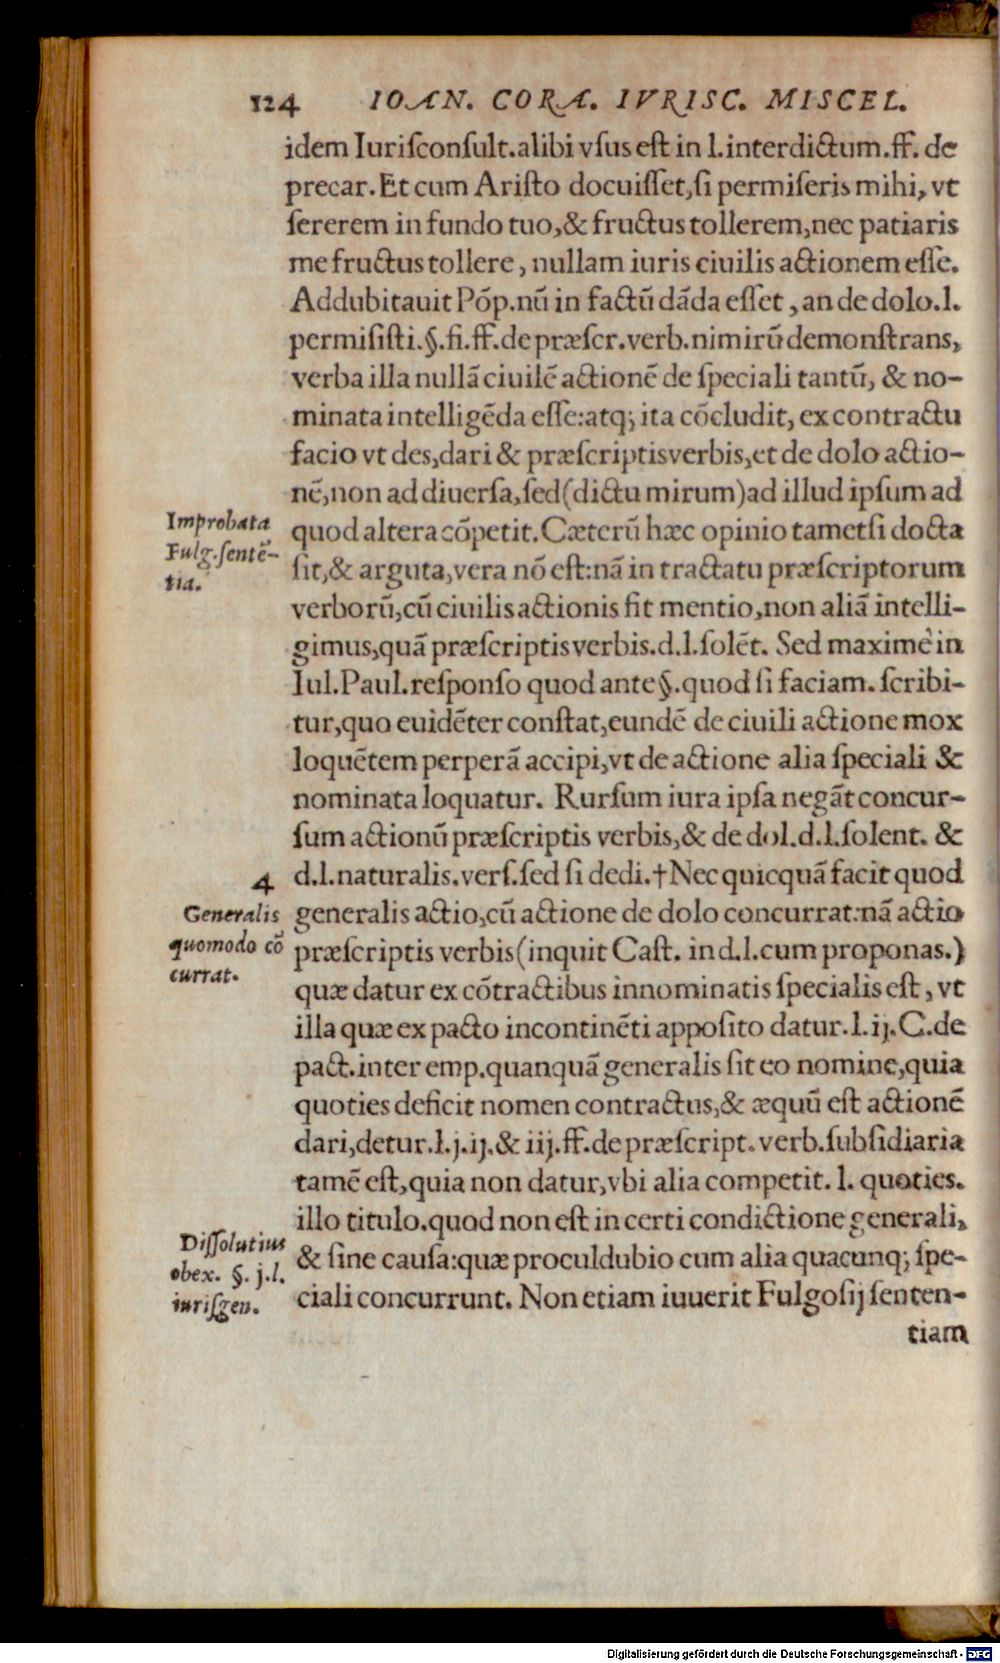 124 IOAN. CORA. IVRISC. MISCEL.
idem Iuriſconſult.alibi vſus eſt in l.interdictum.ff. de
precar. Et cum Ariſto docuiſſet,ſi permiſeris mihi, vt
ſererem in fundo tuo,& fructus tollerem,nec patiaris
me fructus tollere, nullam iuris ciuilis actionem eſſe.
Addubitauit Põp.nũ in factũ dãda eſſet, an de dolo.l.
permiſiſti.§.fi.ff.de præſcr.verb.nimirũ demonſtrans,
verba illa nullã ciuilẽ actionẽ de ſpeciali tantũ, & no-
minata intelligẽda eſſe:atq; ita cõcludit, ex contractu
facio vt des,dari & præſcriptis verbis,et de dolo actio-
nẽ,non ad diuerſa,ſed(dictu mirum)ad illud ipſum ad
Improbata
Fulg.ſentẽ-
tia.
quod altera cõpetit. Cæterũ hæc opinio tametſi docta
ſit,& arguta,vera nõ eſt:nã in tractatu præſcriptorum
verborũ,cũ ciuilis actionis fit mentio,non aliã intelli-
gimus,quã præſcriptis verbis.d.l.ſolẽt. Sed maximè in
Iul.Paul.reſponſo quod ante §.quod ſi faciam. ſcribi-
tur,quo euidẽter conſtat,eundẽ de ciuili actione mox
loquẽtem perperã accipi,vt de actione alia ſpeciali &
nominata loquatur. Rurſum iura ipſa negãt concur-
ſum actionũ præſcriptis verbis,& de dol.d.l.ſolent. &
4
Generalis
quomodo cõ
currat.
d.l.naturalis.verſ.ſed ſi dedi.†Nec quicquã facit quod
generalis actio,cũ actione de dolo concurrat:nã actio
præſcriptis verbis(inquit Caſt. in d.l.cum proponas.)
quæ datur ex cõtractibus innominatis ſpecialis eſt, vt
illa quæ ex pacto incontinẽti appoſito datur.l.ij.C.de
pact.inter emp.quanquã generalis ſit eo nomine,quia
quoties deficit nomen contractus,& æquũ eſt actionẽ
dari,detur.l.j.ij.& iij.ff.de præſcript.verb.ſubſidiaria
tamẽ eſt,quia non datur,vbi alia competit. l. quoties.
illo titulo.quod non eſt in certi condictione generali,
Diſſolutius
obex. §. j.l.
iuriſgen.
& ſine cauſa:quæ proculdubio cum alia quacunq; ſpe-
ciali concurrunt. Non etiam iuuerit Fulgoſij ſenten-
tiam
Digitalisierung gefördert durch die Deutsche Forschungsgemeinschaft - DFG